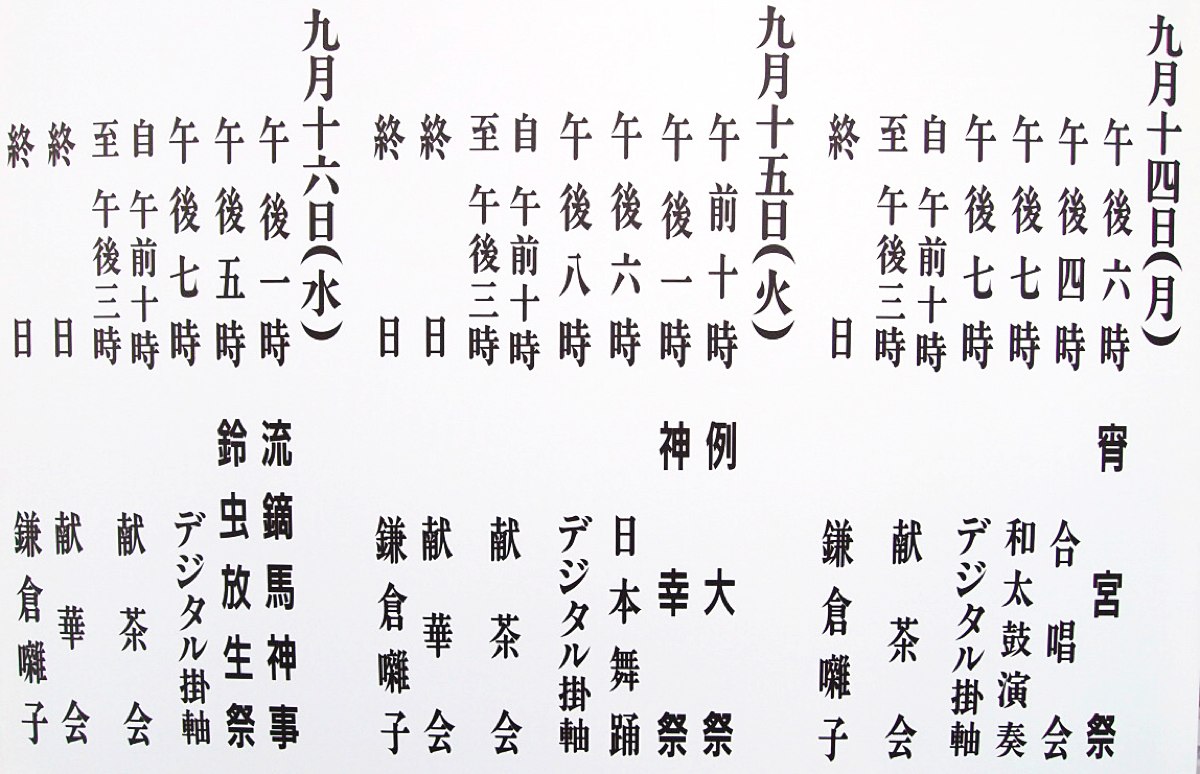 九月十四日(月)
午後六時 宵宮祭
午後四時 合唱会
午後七時 和太鼓演奏
午後七時 デジタル掛軸
自午前十時
至午後三時 献茶会
終日 鎌倉囃子
九月十五日(火)
午前十時 例大祭
午後一時 神幸祭
午後六時 日本舞踊
午後八時 デジタル掛軸
自午前十時
至午後三時 献茶会
終日 献華会
終日 鎌倉囃子
九月十六日(水)
午後一時 流鏑馬神事
午後五時 鈴虫放生祭
午後七時 デジタル掛軸
自午前十時
至午後三時 献茶会
終日 献華会
終日 鎌倉囃子